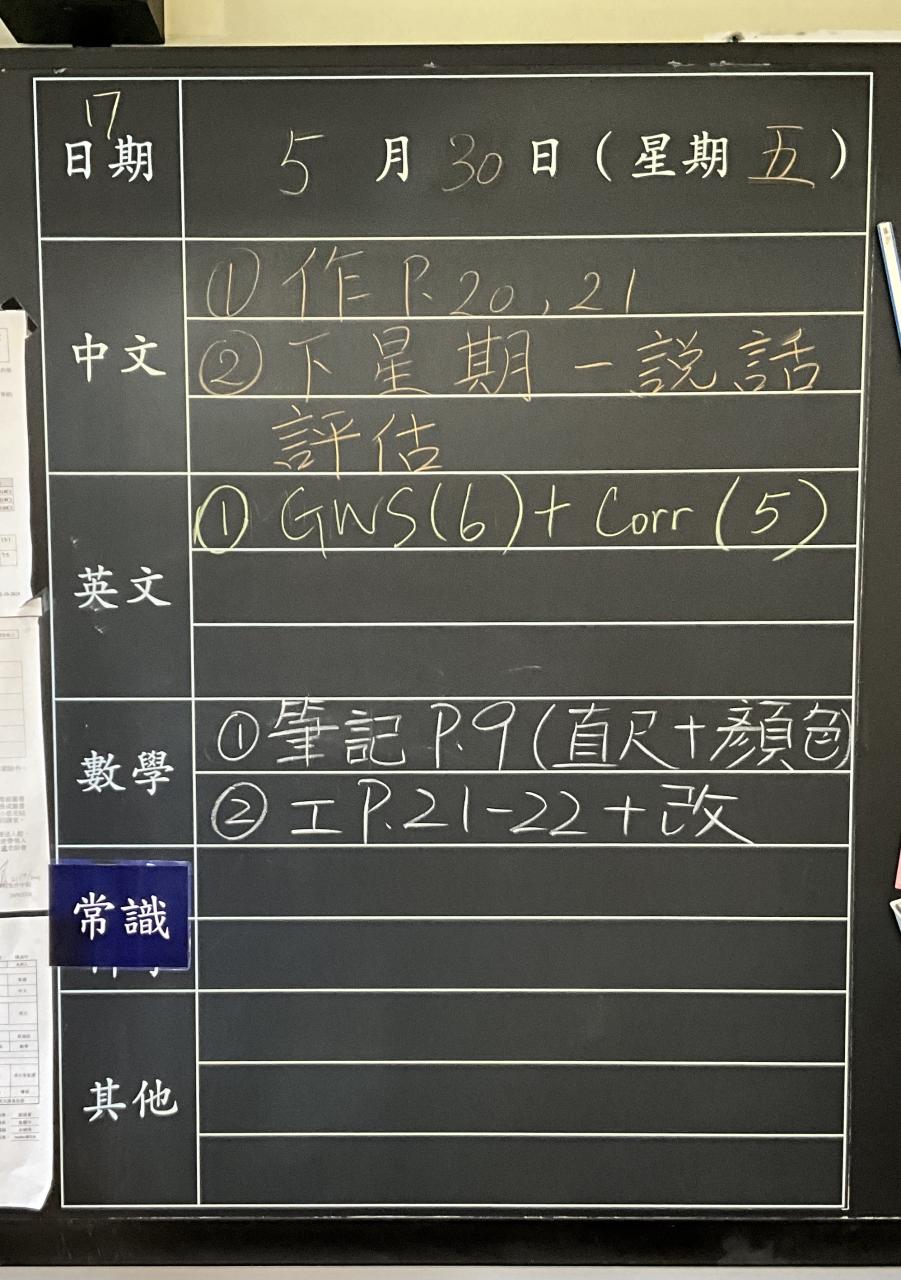 17
日期 5 月 30 日 ( 星期 五 )
中文
① 作 P. 20 , 21
② 下星期一說話
評估
英文
① GWS(6) + Corr (5)
數學
① 筆記 P.9 (直尺+顏色)
② 工 P.21-22 + 改
常識
其他